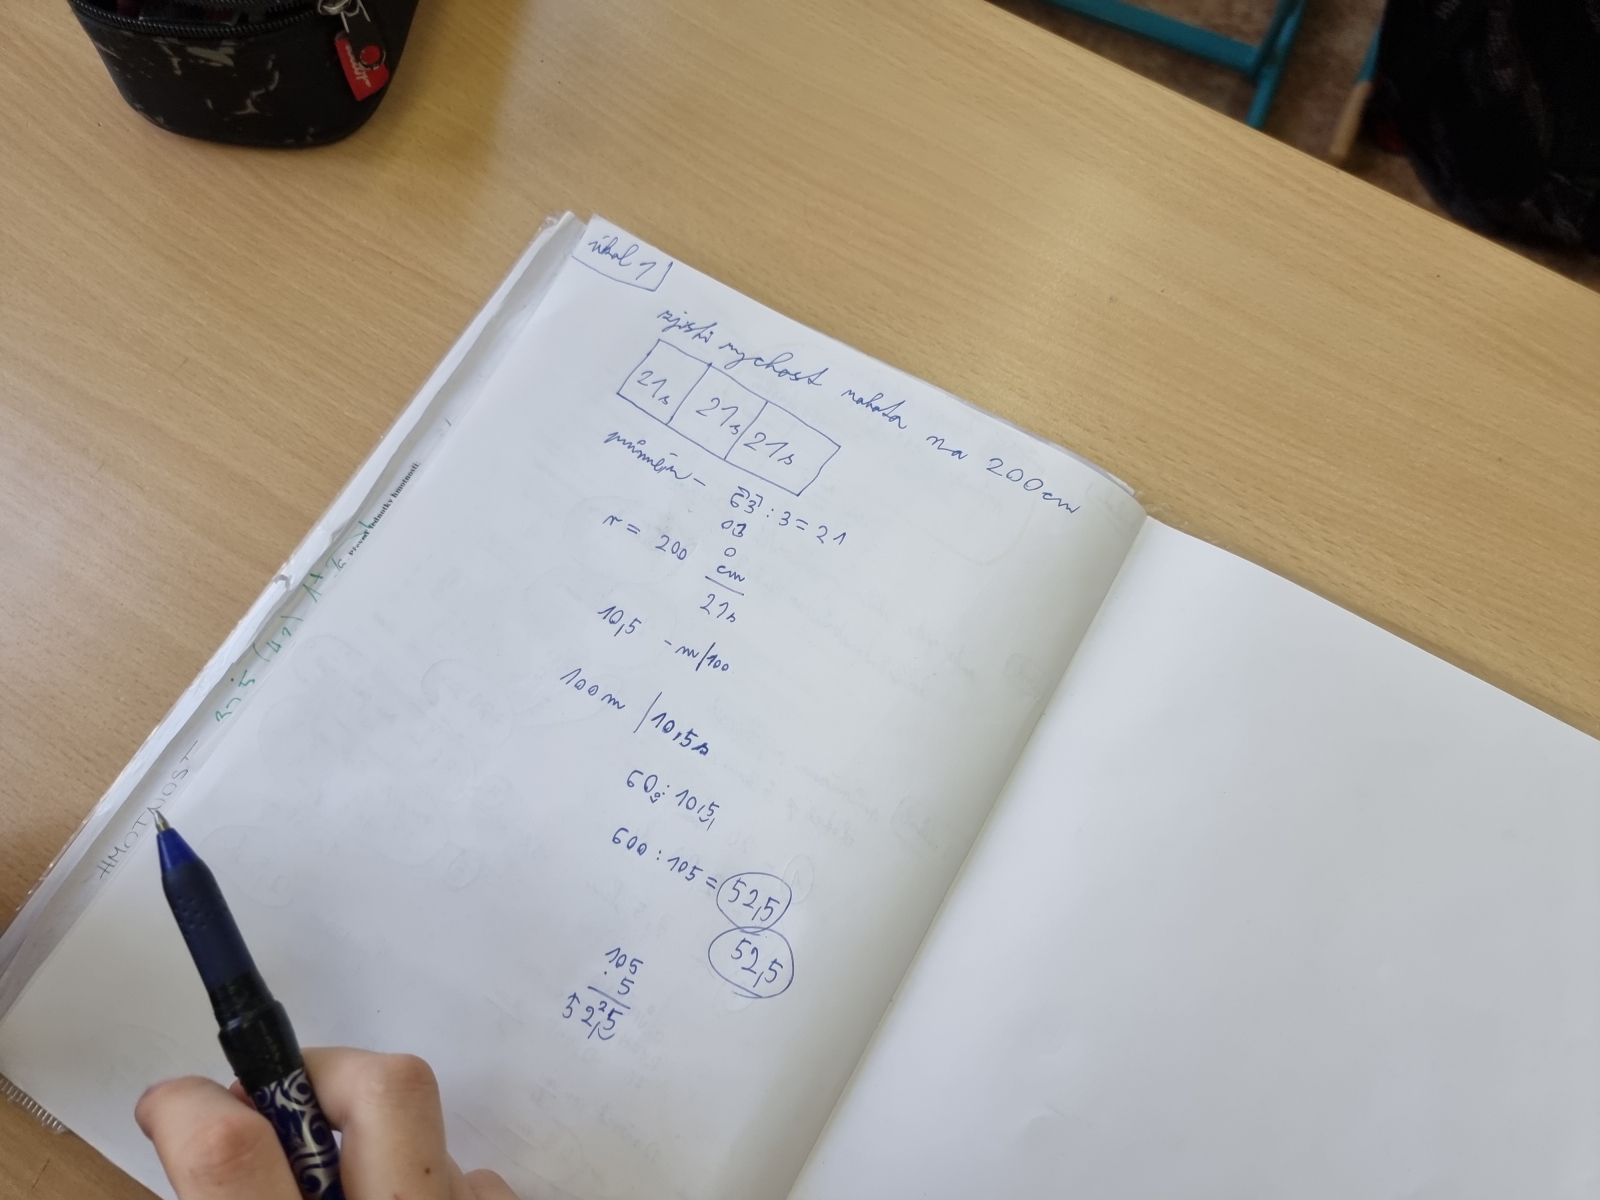 úkol 1
zjisti rychost robota na 200cm
21s 21s 21s
průměr - 63 : 3 = 21
03
0
v = 200 cm
21s
10,5 - m/100
100m / 10,5s
60 : 10,5
600 : 105 = 52,5
52,5
105
. 5
52,5
Převod jednotky hmotnosti
HMOTNOST